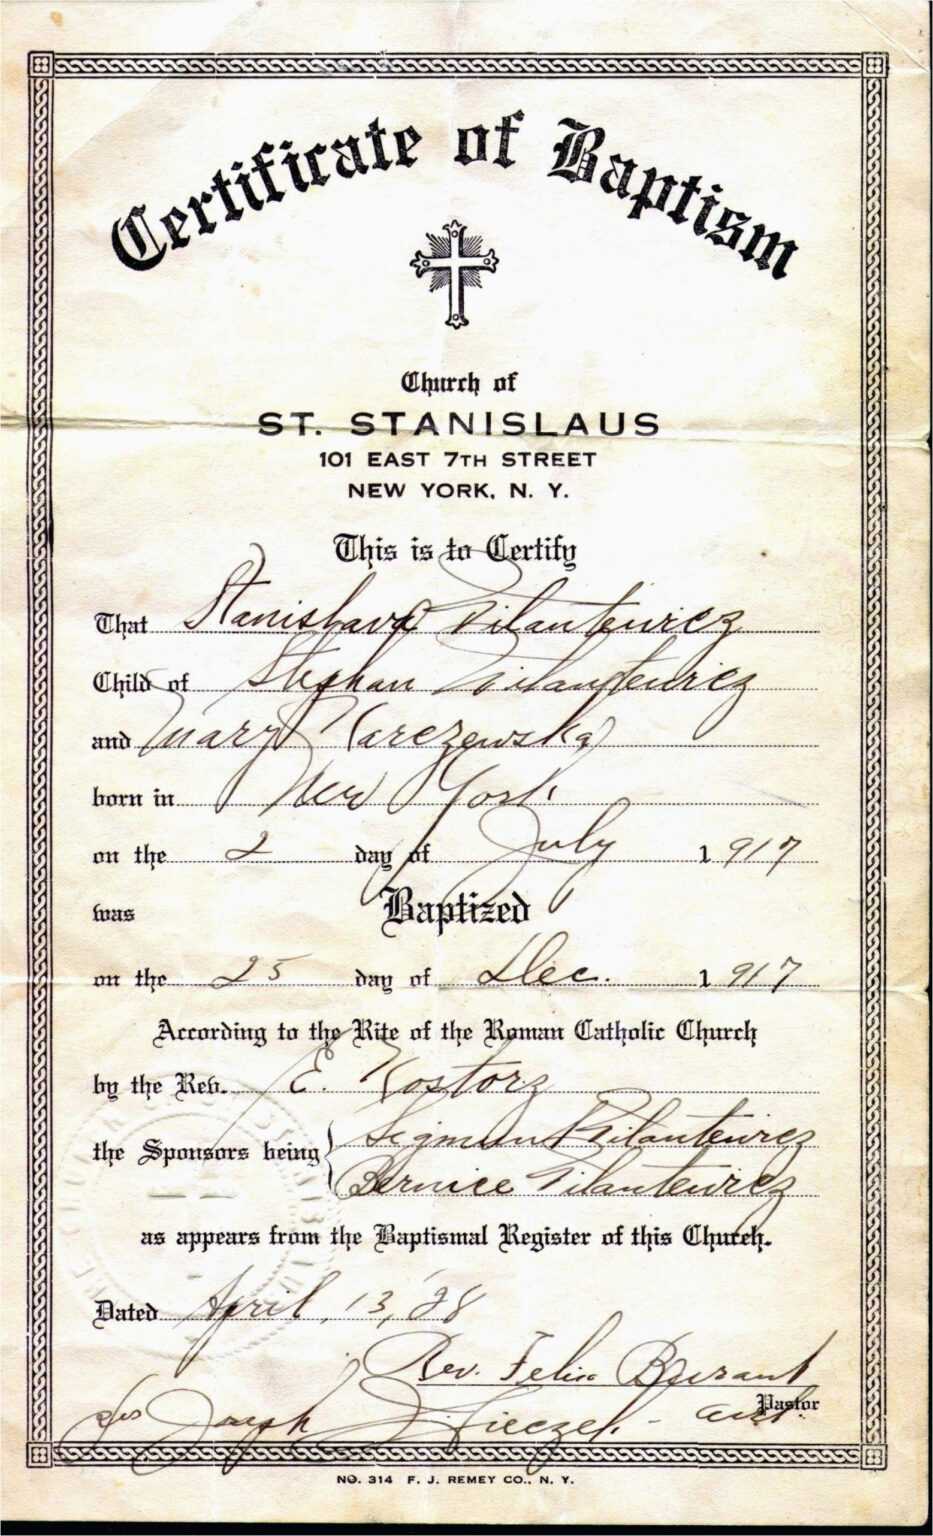 Certificate of Baptism
Church of
ST. STANISLAUS
101 EAST 7TH STREET
NEW YORK, N. Y.
This is to Certify
That Stanislava Pilantewicz
Child of Stephan Pilantewicz
and Mary Karczewska
born in New York
on the 2 day of July 1917
was Baptized
on the 25 day of Dec. 1917
According to the Rite of the Roman Catholic Church
by the Rev. E. Kostorz
the Sponsors being Sigmun Pilantewicz
Bernice Pilantewicz
as appears from the Baptismal Register of this Church.
Dated April, 13, '28
Rev. Felix Burant
Pastor
Joseph J.
NO. 314 F. J. REMEY CO., N. Y.